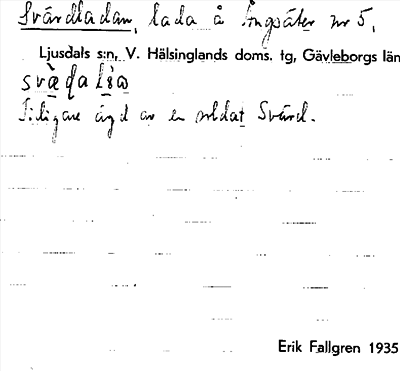 Svärdladan, lada å Ängsäter nr 5,
Ljusdals s:n, V. Hälsinglands doms. tg, Gävleborgs län
Tidigare ägd av en soldat Svärd.
Erik Fallgren 1935